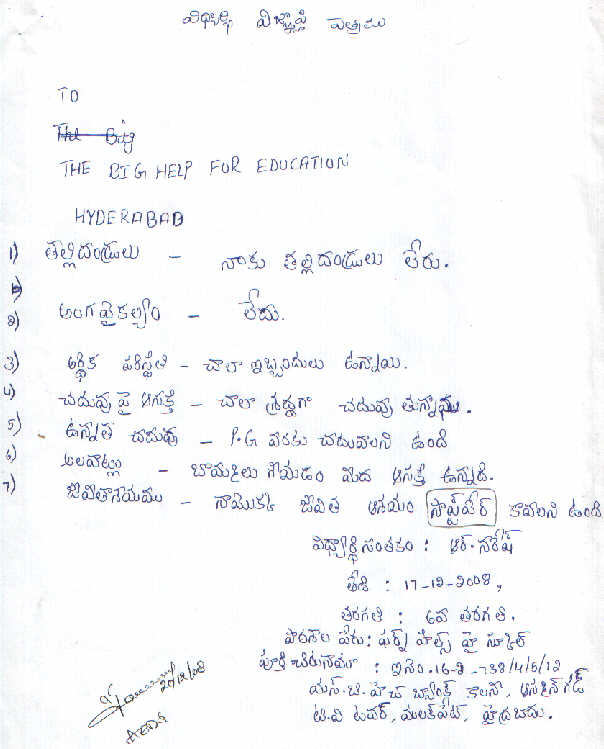 విద్యార్థి విజ్ఞాప్తి పత్రము
TO
The Big
THE BIG HELP FOR EDUCATION
HYDERABAD
1) తల్లిదండ్రులు – నాకు తల్లిదండ్రులు లేరు.
2) అంగవైకల్యం – లేదు.
3) ఆర్థిక పరిస్థితి – చాలా ఇబ్బందులు ఉన్నాయి.
4) చదువు పై ఆసక్తి – చాలా శ్రద్ధగా చదువు తున్నాము.
5) ఉన్నత చదువు – P.G వరకు చదువాలని ఉంది
6) అలవాట్లు – బొమ్మలు గీయడం మీద ఆసక్తి ఉన్నది.
7) జీవితాశయము – నాయొక్క జీవిత ఆశయం సాఫ్ట్‌వేర్ కావాలని ఉంది
విద్యార్థి సంతకం : ఆర్. నరేష్
తేది : 17-12-2008,
తరగతి : 6వ తరగతి.
పాఠశాల పేరు: హై స్కూల్
పూర్తి చిరునామా : ఇ.నెం. 16-2-738/4/5/12
యస్.బి.హెచ్ బ్యాంక్ కాలని,
టి.వి టవర్, మలక్‌పేట్, హైద్రబాదు.
20/12/08